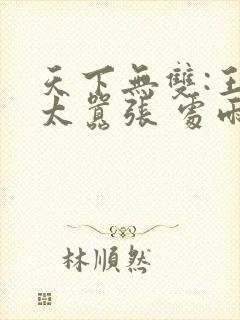 天下無雙:王
太囂張 雲雨
林順然